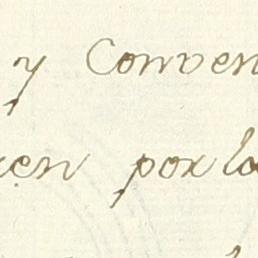 y Conven
en por la